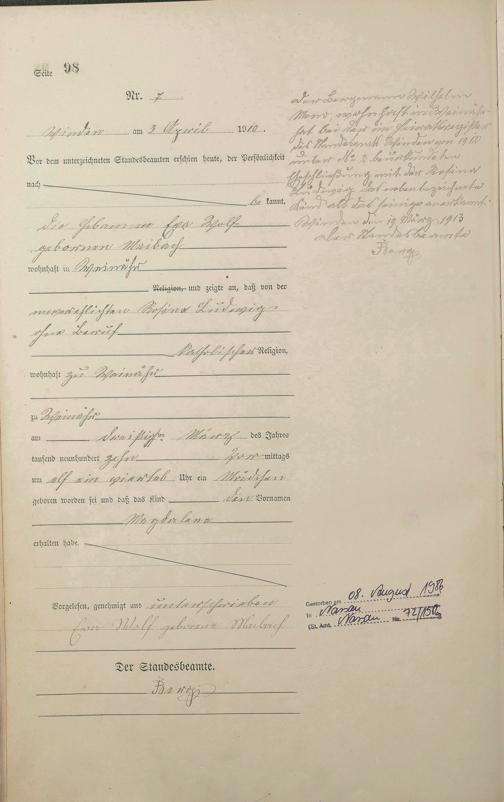 Seite 98
Nr. 7
Winden am 3 April 1910.
Vor dem unterzeichneten Standesbeamten erschien heute, der Persönlichkeit
nach be kannt,
die Hebamme Eva Wolf
geborenen Maibach
wohnhaft in Weinähr
Religion, und zeigte an, daß von der
unverehlichten Rosina Ludwig
ohne Beruf
katholischer Religion,
wohnhaft zu Weinähr
zu Weinähr
am dreißigsten März des Jahres
tausend neunhundert zehn Vor mittags
um elf ein viertel Uhr ein Mädchen
geboren worden sei und daß das Kind den Vornamen
Magdalena
erhalten habe.
Vorgelesen, genehmigt und unterschrieben
Eva Wolf geborene Maibach
Der Standesbeamte.
der Bergmann Wilhelm
wohnhaft in Weinähr
hat bei der im Heiratsregister
des Standesamts Winden von 1910
unter No 2 beurkundeten
Eheschließung mit der Rosina
Ludwig das nebenbezeichnete
Kind als das seinige anerkannt.
Winden den 19 März 1913
der Standesbeamte
Gestorben am 08. August 1986
in Nassau
(St. Amt. Nassau Nr. 72/1986